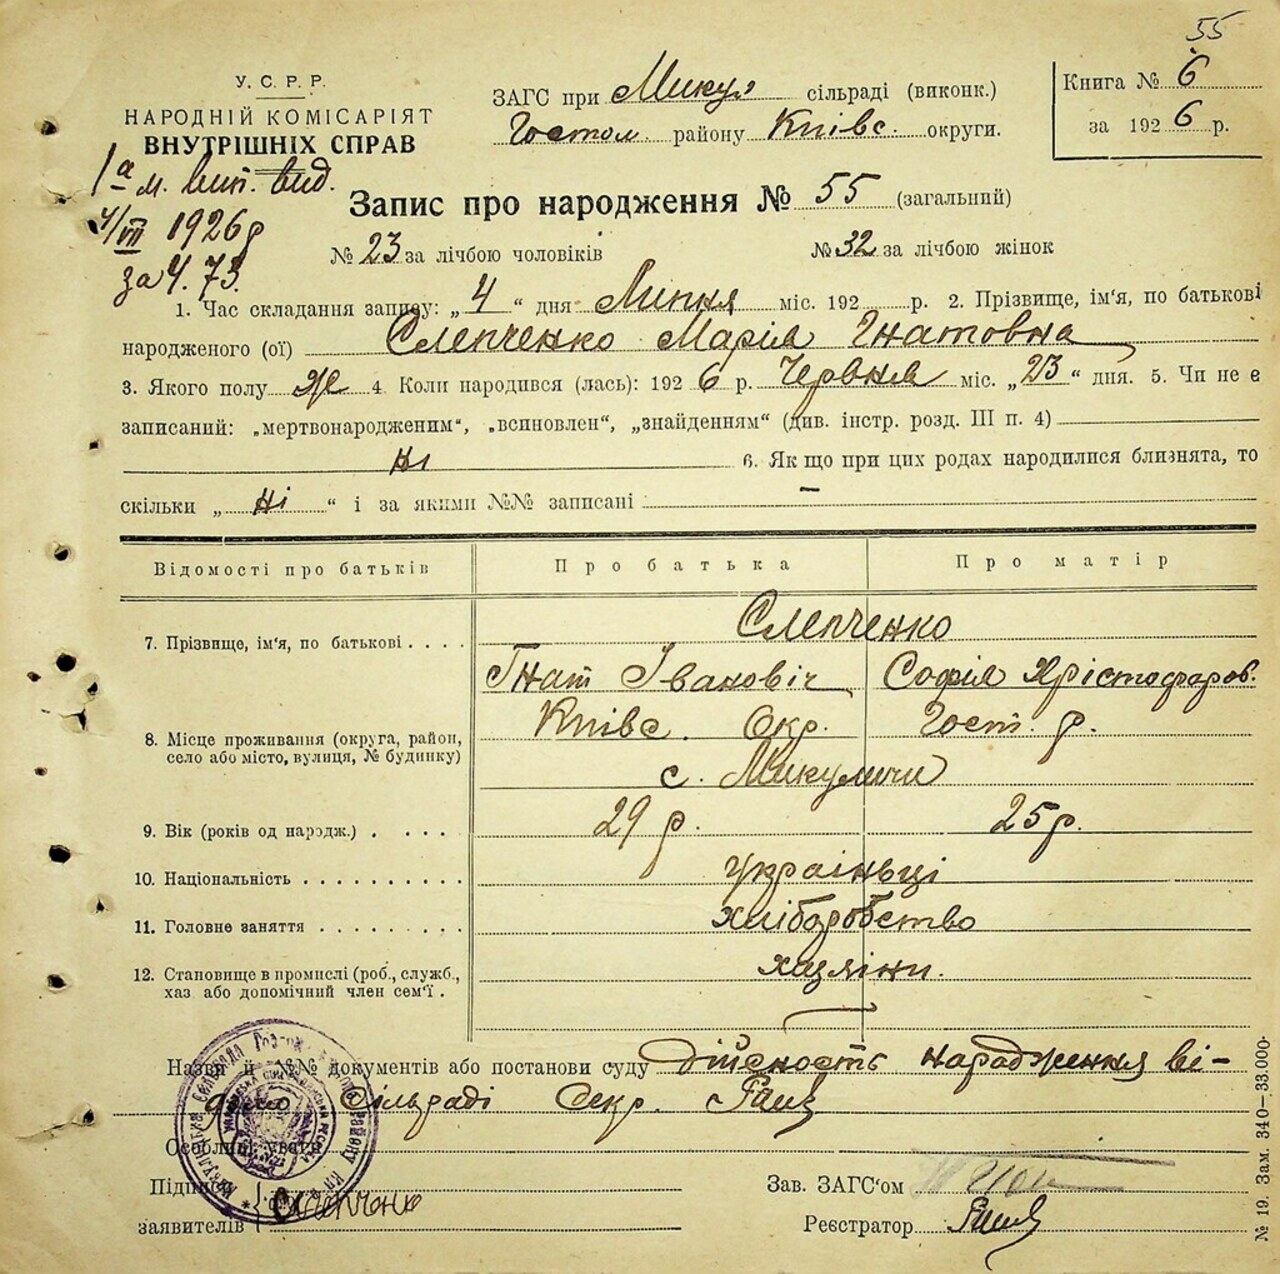 55
У. С. Р. Р.
НАРОДНІЙ КОМІСАРІЯТ
ВНУТРІШНІХ СПРАВ
1а м. вип. вид.
4/VII 1926 р
за Ч. 73.
ЗАГС при Микул сільраді (виконк.)
Гостом. району Київс. округи.
Книга № 6
за 1926 р.
Запис про народження № 55 (загальний)
№ 23 за лічбою чоловіків № 32 за лічбою жінок
1. Час складання запису: „ 4 “ дня Липня міс. 192 р. 2. Прізвище, ім'я, по батькові
народженого (ої) Слепченко Марія Гнатовна
3. Якого полу Ж 4. Коли народився (лась): 1926 р. Червня міс. „ 23 “ дня. 5. Чи не є
записаний: „мертвонародженим“, „всиновлен“, „знайденням“ (див. інстр. розд. III п. 4)
ні 6. Якщо при цих родах народилися близнята, то
скільки „ ні “ і за якими №№ записані —
Відомості про батьків Про батька Про матір
7. Прізвище, ім'я, по батькові . . . . Слепченко
Гнат Івановіч Софія Хрістофоров.
8. Місце проживання (округа, район, село або місто, вулиця, № будинку) Київс. Окр. Гост. р.
с. Микуличи
9. Вік (років од народж.) . . . . 29 р. 25 р.
10. Національність . . . . . . . . . . україньці
11. Головне заняття . . . . . . . . . хліборобство
12. Становище в промислі (роб., служб., хаз або допомічний член сем'ї . хазяіни.
Назви й №№ документів або постанови суду дійсность народження ві-
домо сільраді Секр.
Особливі уваги
Підписи
заявителів Слепченко
Зав. ЗАГС'ом
Реєстратор
№ 19. Зам. 340—33.000·